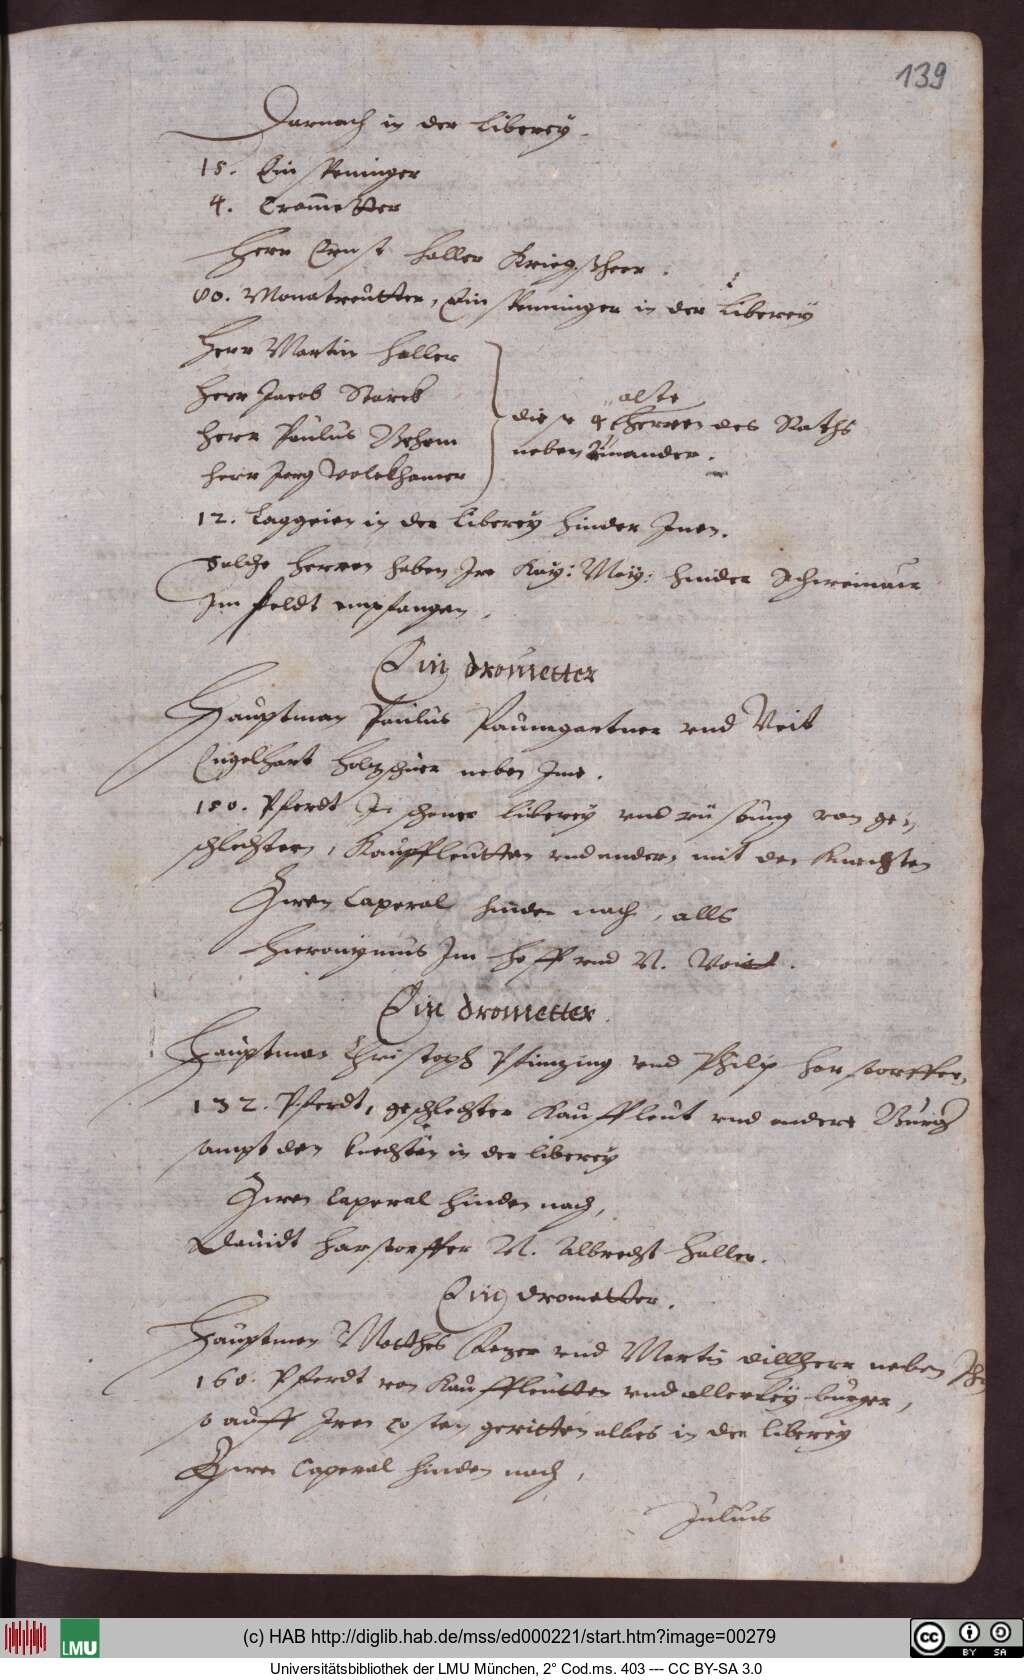 139
Darnach in der Liberey.
15. Ein spenninger
4. Trom̄etter
Herr Ernst Haller Kriegsherr.
80. Monatreutter, Ein spenninger in der Liberey
Herr Martin Haller
Herr Jacob Starck
Herr Paulus Behem
Herr Jorg Volckhamer
alte
diese 4 Herren des Raths
neben einander.
12. Laggeien in der Liberey hinder Inen.
Solche Herren haben Ire Kay: May: hinder Schweinaur
Im Feldt empfangen.
Ein drometter
Hauptman Paulus Paumgartner vnd Veit
Engelhart Holtzschuer neben Ime.
150. Pferdt In schener Liberey vnd rüstung von ge-
schlechtern, Kauffleutten vnd andern mit den Knechten
Zwen Caperal hinden nach, alls
Hieronymus Im hoff vnd N.
Ein drometter.
Hauptman Christoph Pfinzing vnd Philip Harstorffer,
132. Pferdt, geschlechter Kauffleut vnd andere Burger
sampt den knechten in der Liberey
Zwen Caperal hinden nach,
Dauidt Harstorffer N. Albrecht Haller.
Ein drometter.
Hauptman Matthes vnd Martin Dillherr neben
160. Pferdt von Kauffleutten vnd allerley burger,
so auff Iren costen geritten alles in der Liberey
Zwen Caperal hinden nach,
Julius
(c) HAB http://diglib.hab.de/mss/ed000221/start.htm?image=00279
LMU
cc BY SA
Universitätsbibliothek der LMU München, 2° Cod.ms. 403 --- CC BY-SA 3.0